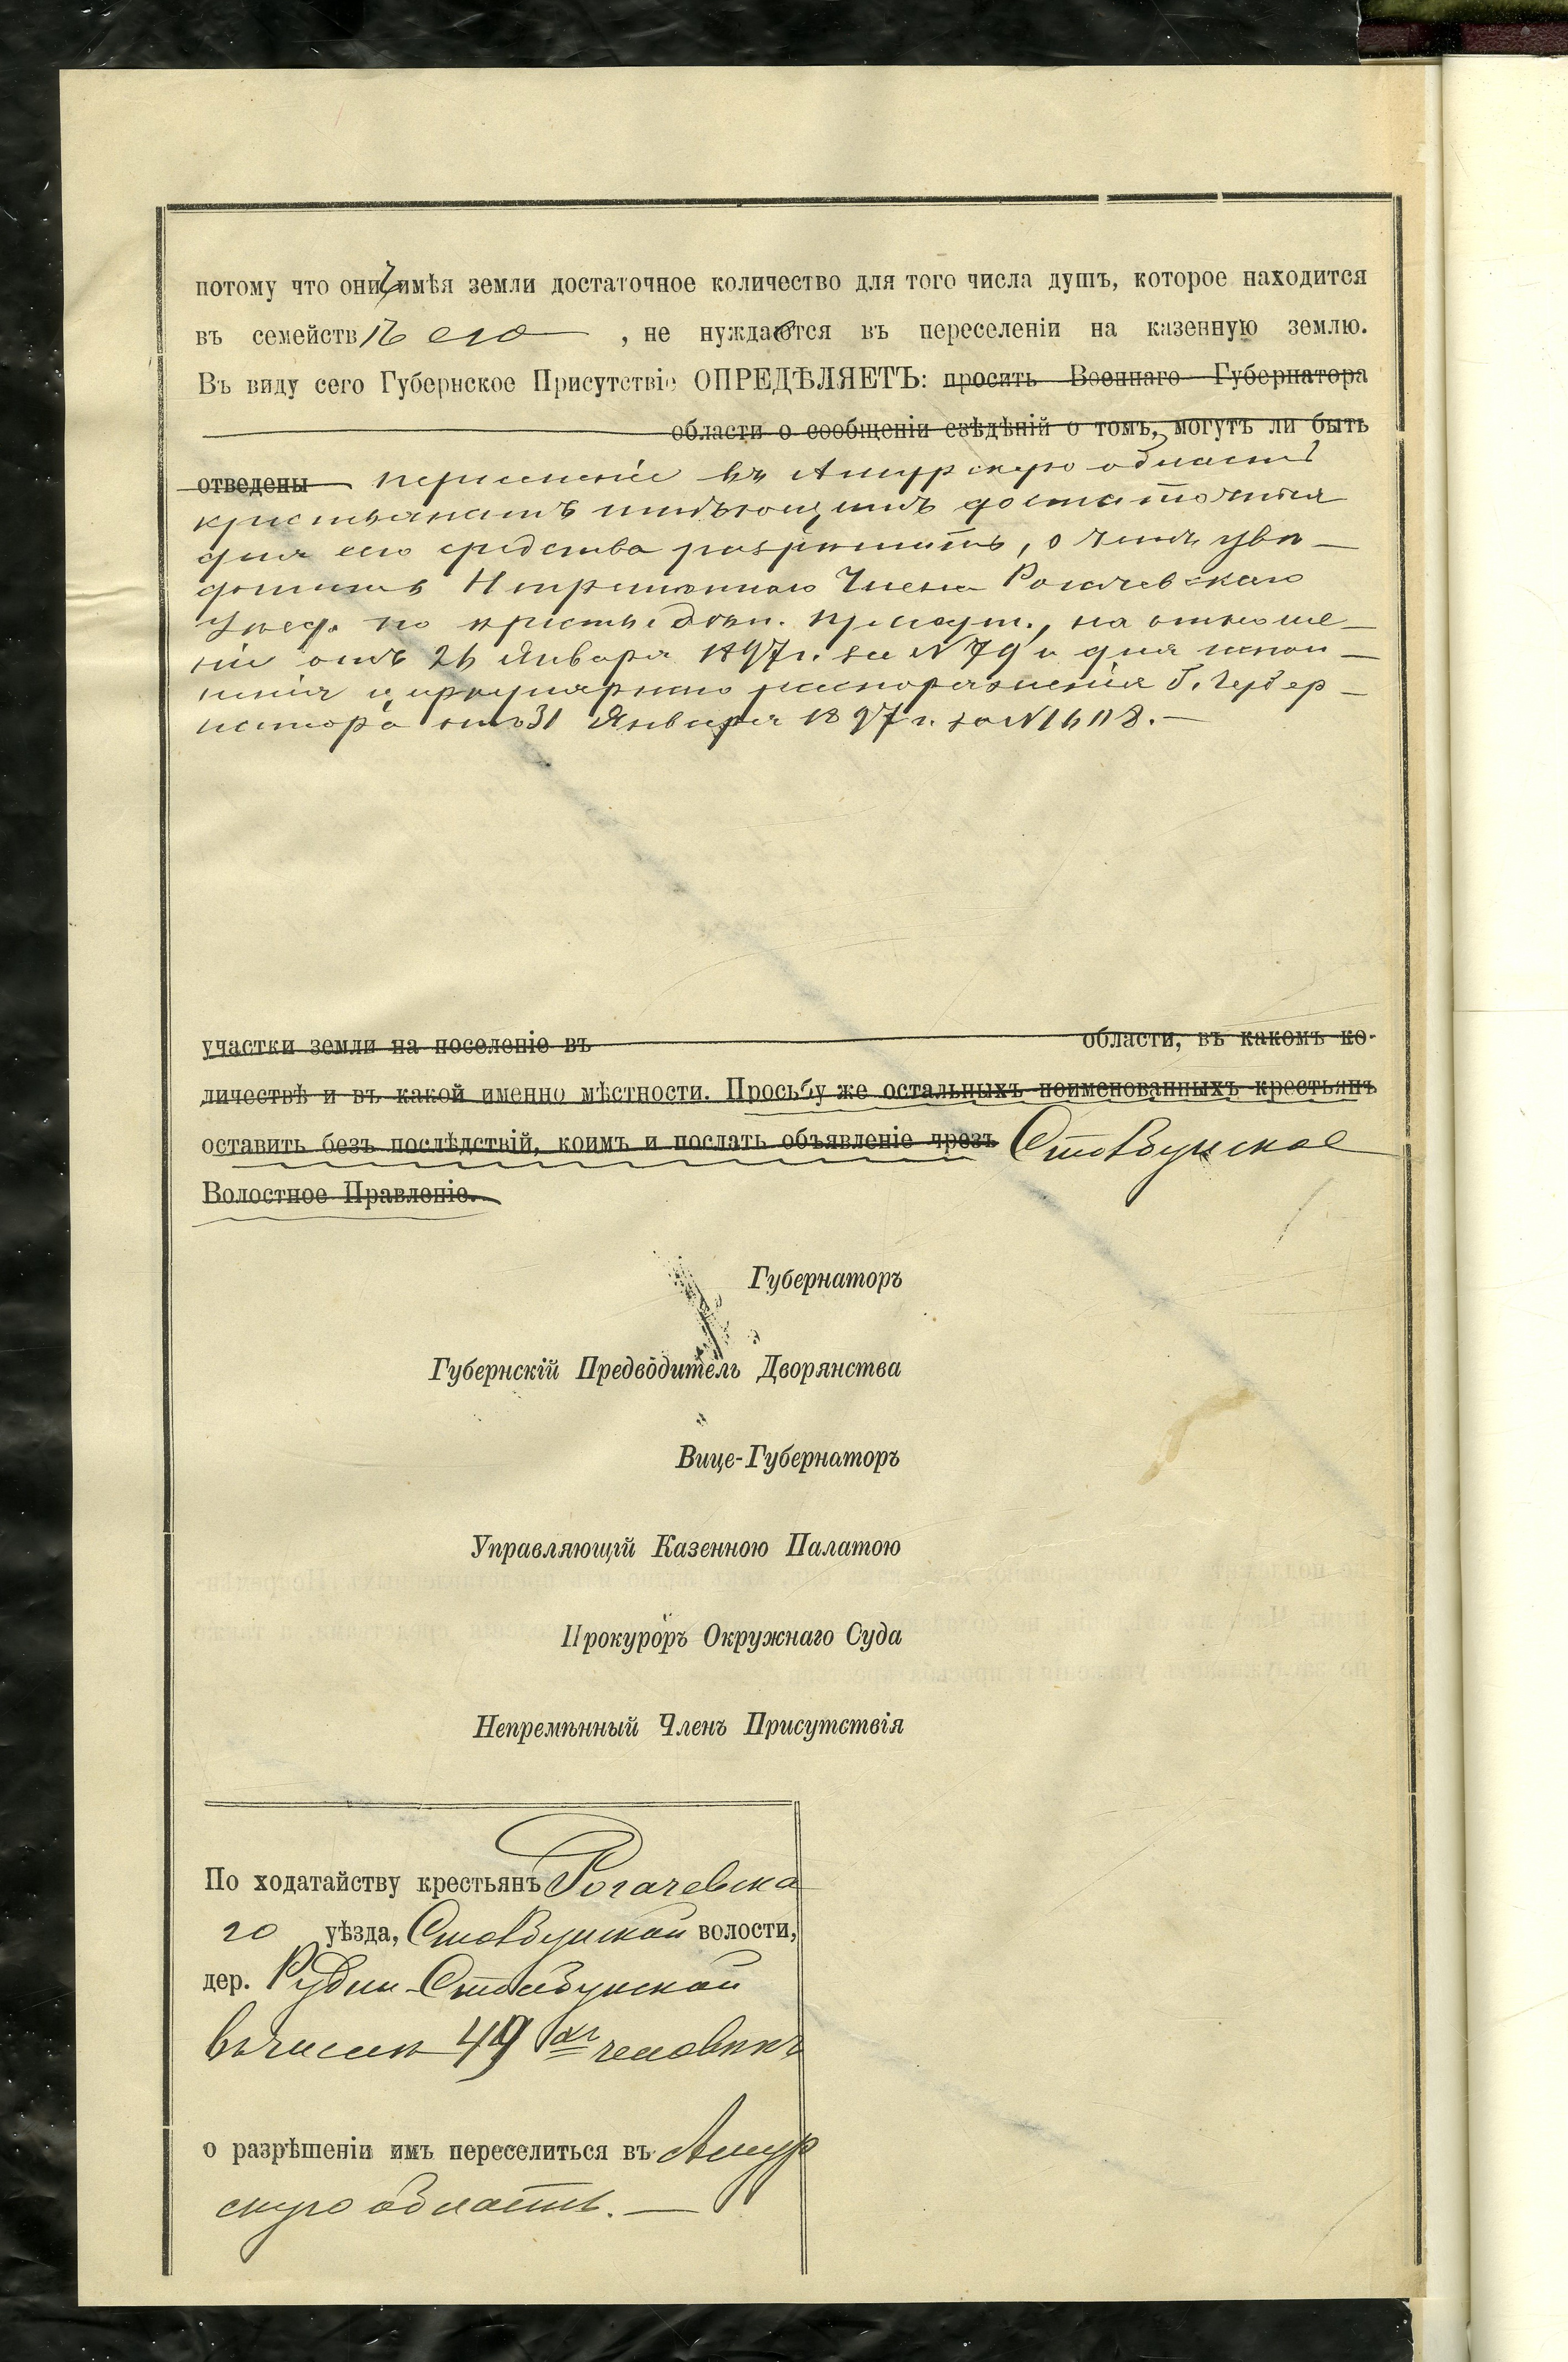 потому что они имѣя земли достаточное количество для того числа душъ, которое находится
въ семействѣ его , не нуждаются въ переселеніи на казенную землю.
Въ виду сего Губернское Присутствіе ОПРЕДѢЛЯЕТЪ: просить Военнаго Губернатора
области о сообщеніи свѣдѣній о томъ, могутъ ли быть
отведены переселеніе въ Амурскую область
крестьянамъ имѣющимъ достаточныя
для сего средства разрѣшить, о чемъ уве-
домить Непремѣннаго Члена Рогачевскаго
Уѣзд. по крестьянск. присут., на отноше-
ніе отъ 26 Января 1897 г. за N 79 и для испол-
ненія циркулярнаго распоряженія Г. Губер-
натора отъ 31 Января 1897 г. за N 1608.—
участки земли на поселеніе въ области, въ какомъ ко-
личествѣ и въ какой именно мѣстности. Просьбу же остальныхъ поименованныхъ крестьянъ
оставить безъ послѣдствій, коимъ и послать объявленіе чрезъ Столбунское
Волостное Правленіе.
Губернаторъ
Губернскій Предводитель Дворянства
Вице-Губернаторъ
Управляющій Казенною Палатою
Прокуроръ Окружнаго Суда
Непремѣнный Членъ Присутствія
По ходатайству крестьянъ Рогачевска
го уѣзда, Столбунской волости,
дер. Рудни-Столбунской
въ числѣ 49 человѣкъ
о разрѣшеніи имъ переселиться въ Амур
скую область.—